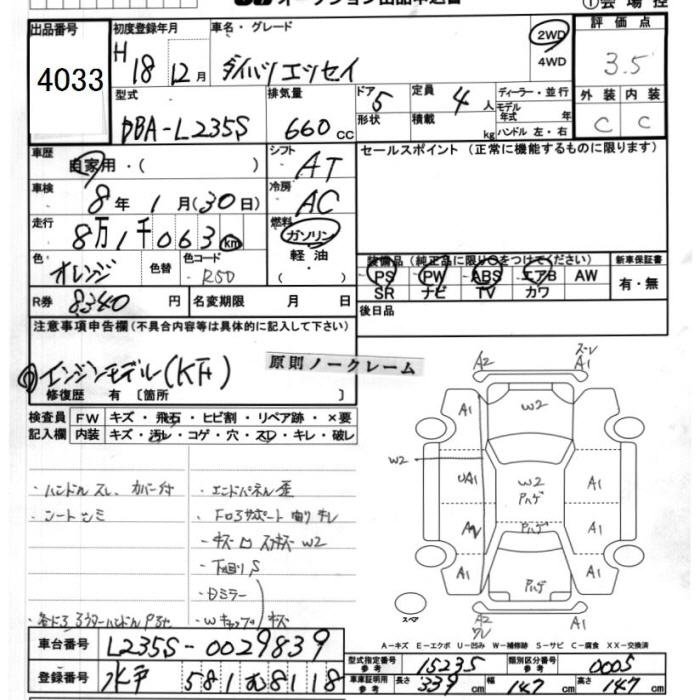 オークション出品申込書
①会場控
出品番号
4033
初度登録年月
H18 12月
車名・グレード
ダイハツ エッセイ
2WD
4WD
評価点
3.5
外装 内装
C C
型式
DBA-L235S
排気量
660cc
ドア 5
形状
定員 4人
積載 kg
ディーラー・並行
モデル年式 年
ハンドル 左・右
車歴
自家用・( )
シフト
AT
セールスポイント(正常に機能するものに限ります)
車検
8年1月(30日)
冷房
AC
走行
8万1千063km
燃料
ガソリン
軽油
( ・ )
色
オレンジ
色替
色コード
R50
装備品(純正品に限り○をつけてください)
PS PW ABS エアB AW
SR ナビ TV カワ
新車保証書
有・無
R券
8340円
名変期限 月 日
後日品
注意事項申告欄(不具合内容等は具体的に記入して下さい)
エンジンモデル(KF)
原則ノークレーム
修復歴 有〔箇所 〕
検査員記入欄
FW キズ・飛石・ヒビ割・リペア跡・×要
内装 キズ・汚レ・コゲ・穴・スレ・キレ・破レ
・ハンドルスレ、カバー付
・シートシミ
・エンドパネル歪
・下回りS
・Dミラー
A2
A1
A1
W2
A1
W2
UA1
W2
Pハゲ
A1
Pハゲ
A1
A1
Pハゲ
A1
スペア
A2
A1
A-キズ E-エクボ U-凹み W-補修跡 S-サビ C-腐食 XX-交換済
車台番号
L235S-0029839
登録番号
水戸 581 む8118
型式指定番号 参考
15235
類別区分番号 参考
0005
車庫証明用 参考
長さ 339cm 幅 147cm 高さ 147cm